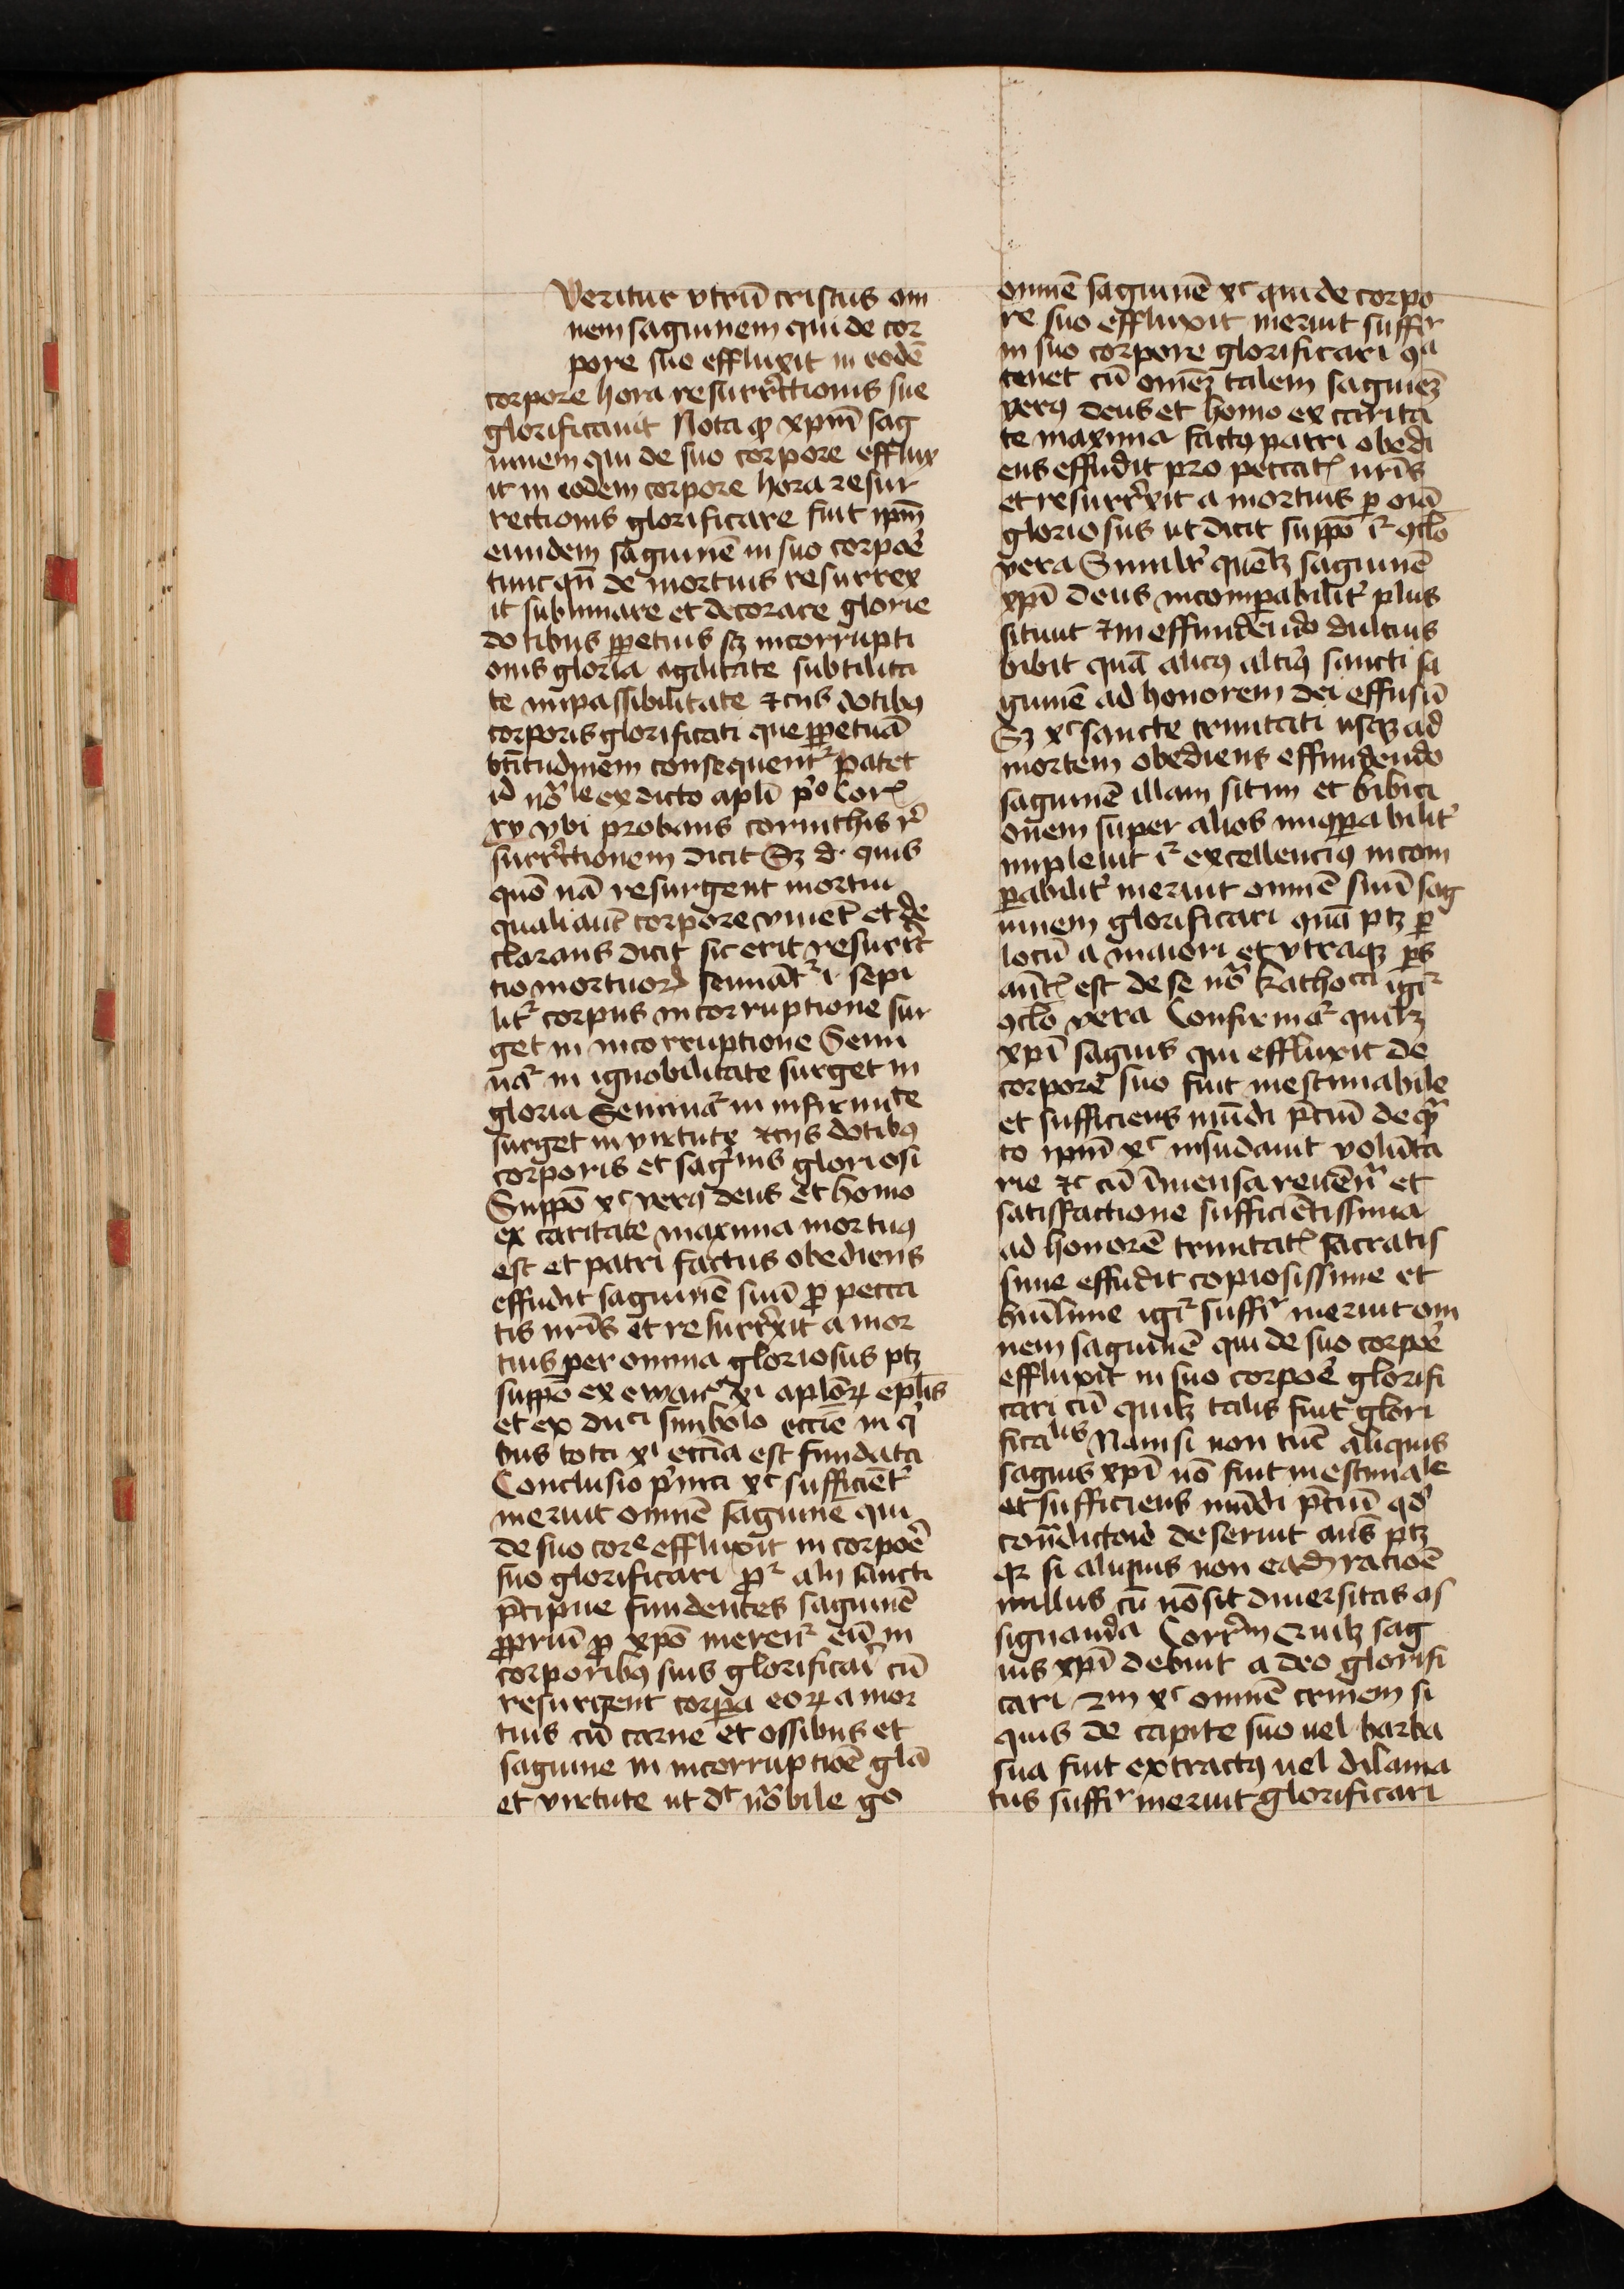 Ueritur vtrū cristus om
nem saguinem qui de cor
pore suo effluxit in eodē
corpore hora resurrectionis sue
glorificauit Nota ꝙ xpm̄ sag
uinem qui de suo corpore efflux
it in eodem corpore hora resur
rectionis glorificare fuit ipm̄
eundem saguinē in suo corpoꝛe
tunc qn̄ de mortuis resurrex
it sublimare et decorare glorie
dotibus ꝑpetuis sꝫ incorrupti
onis gloria agilitate subtilita
te impassibilitate ⁊ cūs dotibꝰ
corporis glorificati que ꝑpetuā
btītudinem consequent᷑ patet
id nōle ex dicto apl̄i pº Coꝝ
xv vbi probans corinthis re
surrectionem dicit Sꝫ d. quis
quō nā resurgent mortui
quali aut̄ corpore viuēt et de
clarans dicit sic erit resurrec
tio mortuoꝝ semināt᷑ i sepi
lit᷑ corpus in corruptione sur
get in incorruptione Semi
nā᷑ in ignobilitate surget in
gloria Seminā᷑ in infirmite
surget in virtute ⁊ cijs dotibꝰ
corporis et saguis gloriosi
Suppō xc verꝰ deus et homo
ex caritate maxima mortuꝰ
est et patri factus obediens
effudit saguinē suū ꝓ pecca
tis nr̄is et resurrexit a mor
tuis per omnia gloriosus ptꝫ
suppō ex ewār xi aplōꝝ epl̄is
et ex duci simbolo eccīe in q̄
bus tota xi eccīa est fundata
Conclusio prima xc sufficiēt᷑
meruit omnē saguinē qui
de suo core effluxit in corpoē
suo glorificari ꝓ᷑ alij sancti
p̄cipue fundentes saguinē
ꝓpriū ꝓ xpō meren᷑ eū in
corporibꝰ suis glorificari cū
resurgent corpa eoꝝ a mor
tuis cū carne et ossibus et
saguine in incorruptiōe glā
et virtute ut dt nōbile go
omnē saguinē xc qui de corpo
re suo effluxit meruit suffir
in suo corpore glorificari ꝯa
tenet cū om̄eꝫ talem saguineꝫ
verꝰ deus et homo ex carita
te maxima factꝰ patri obedi
ens effudit pro peccatꝭ nr̄is
et resurrexit a mortuis ꝑ oīa
gloriosus ut dicit suppō i᷑ ꝯclō
vera Similr̄ quēlꝫ saguinē
xpī deus incompabilit᷑ plus
sitiuit ⁊ in effundendo dulcius
bibit quā alicꝰ altiꝰ sancti sa
guinē ad honorem dei effusū
Sꝫ xc sancte trinitati usqꝫ ad
mortem obediens effundendo
saguinē illam sitim et bibici
onem super alios inꝯpabilit᷑
impleuit i᷑ excellenciꝰ incom
pabilit᷑ meruit omnē suū sag
uinem glorificari quā ptꝫ ꝑ
locū a maiori et vtraqꝫ ps
ant̄ꝭ est de se nō kathoca igi᷑
ꝯclō vera Confirma᷑ quilꝫ
xpī saguis qui effluxit de
corpore suo fuit inestimabile
et sufficiens mūdi p̄ciū de q̄
to ipm̄ xc insudauit volūta
rie ⁊c cū īmensa reuēr̄ et
satisfactione sufficiētissima
ad honorē trinitatꝭ sacratis
sime effudit copiosissime et
humlime igi᷑ suffir meruit om
nem saguinē qui de suo corpoē
effluxit in suo corpoē glorifi
cari cū quilꝫ talis fuit glori
ficalis Nam si non tūc aliquis
saguis xpī nō fuit inestimale
et sufficiens mūdi p̄ciū qd̄
contradictorie deseruit aūs ptꝫ
qꝛ si alicuius non eadꝫ ratioē
nullus cū nō sit diuersitas as
signanda Corrm Quilꝫ sag
uis xpī debuit a deo glorifi
cari 2m xc omnē crinem si
quis de capite suo uel barba
sua fuit extractꝰ uel dilania
tus suffir meruit glorificari